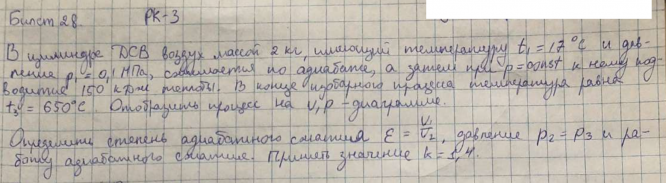 Билет 28. РК-3
В цилиндре ДСВ воздух массой 2 кг, имеющий температуру t₁ = 17 °C и дав-
ление p₁ = 0,1 МПа, сжимается по адиабате, а затем при p = const к нему под-
водится 150 кДж теплоты. В конце изобарного процесса температура равна
t₃ = 650°C. Отобразить процесс на v,p - диаграмме.
Определить степень адиабатного сжатия ε = V₁/V₂, давление p₂ = p₃ и ра-
боту адиабатного сжатия. Принять значение k = 1,4.